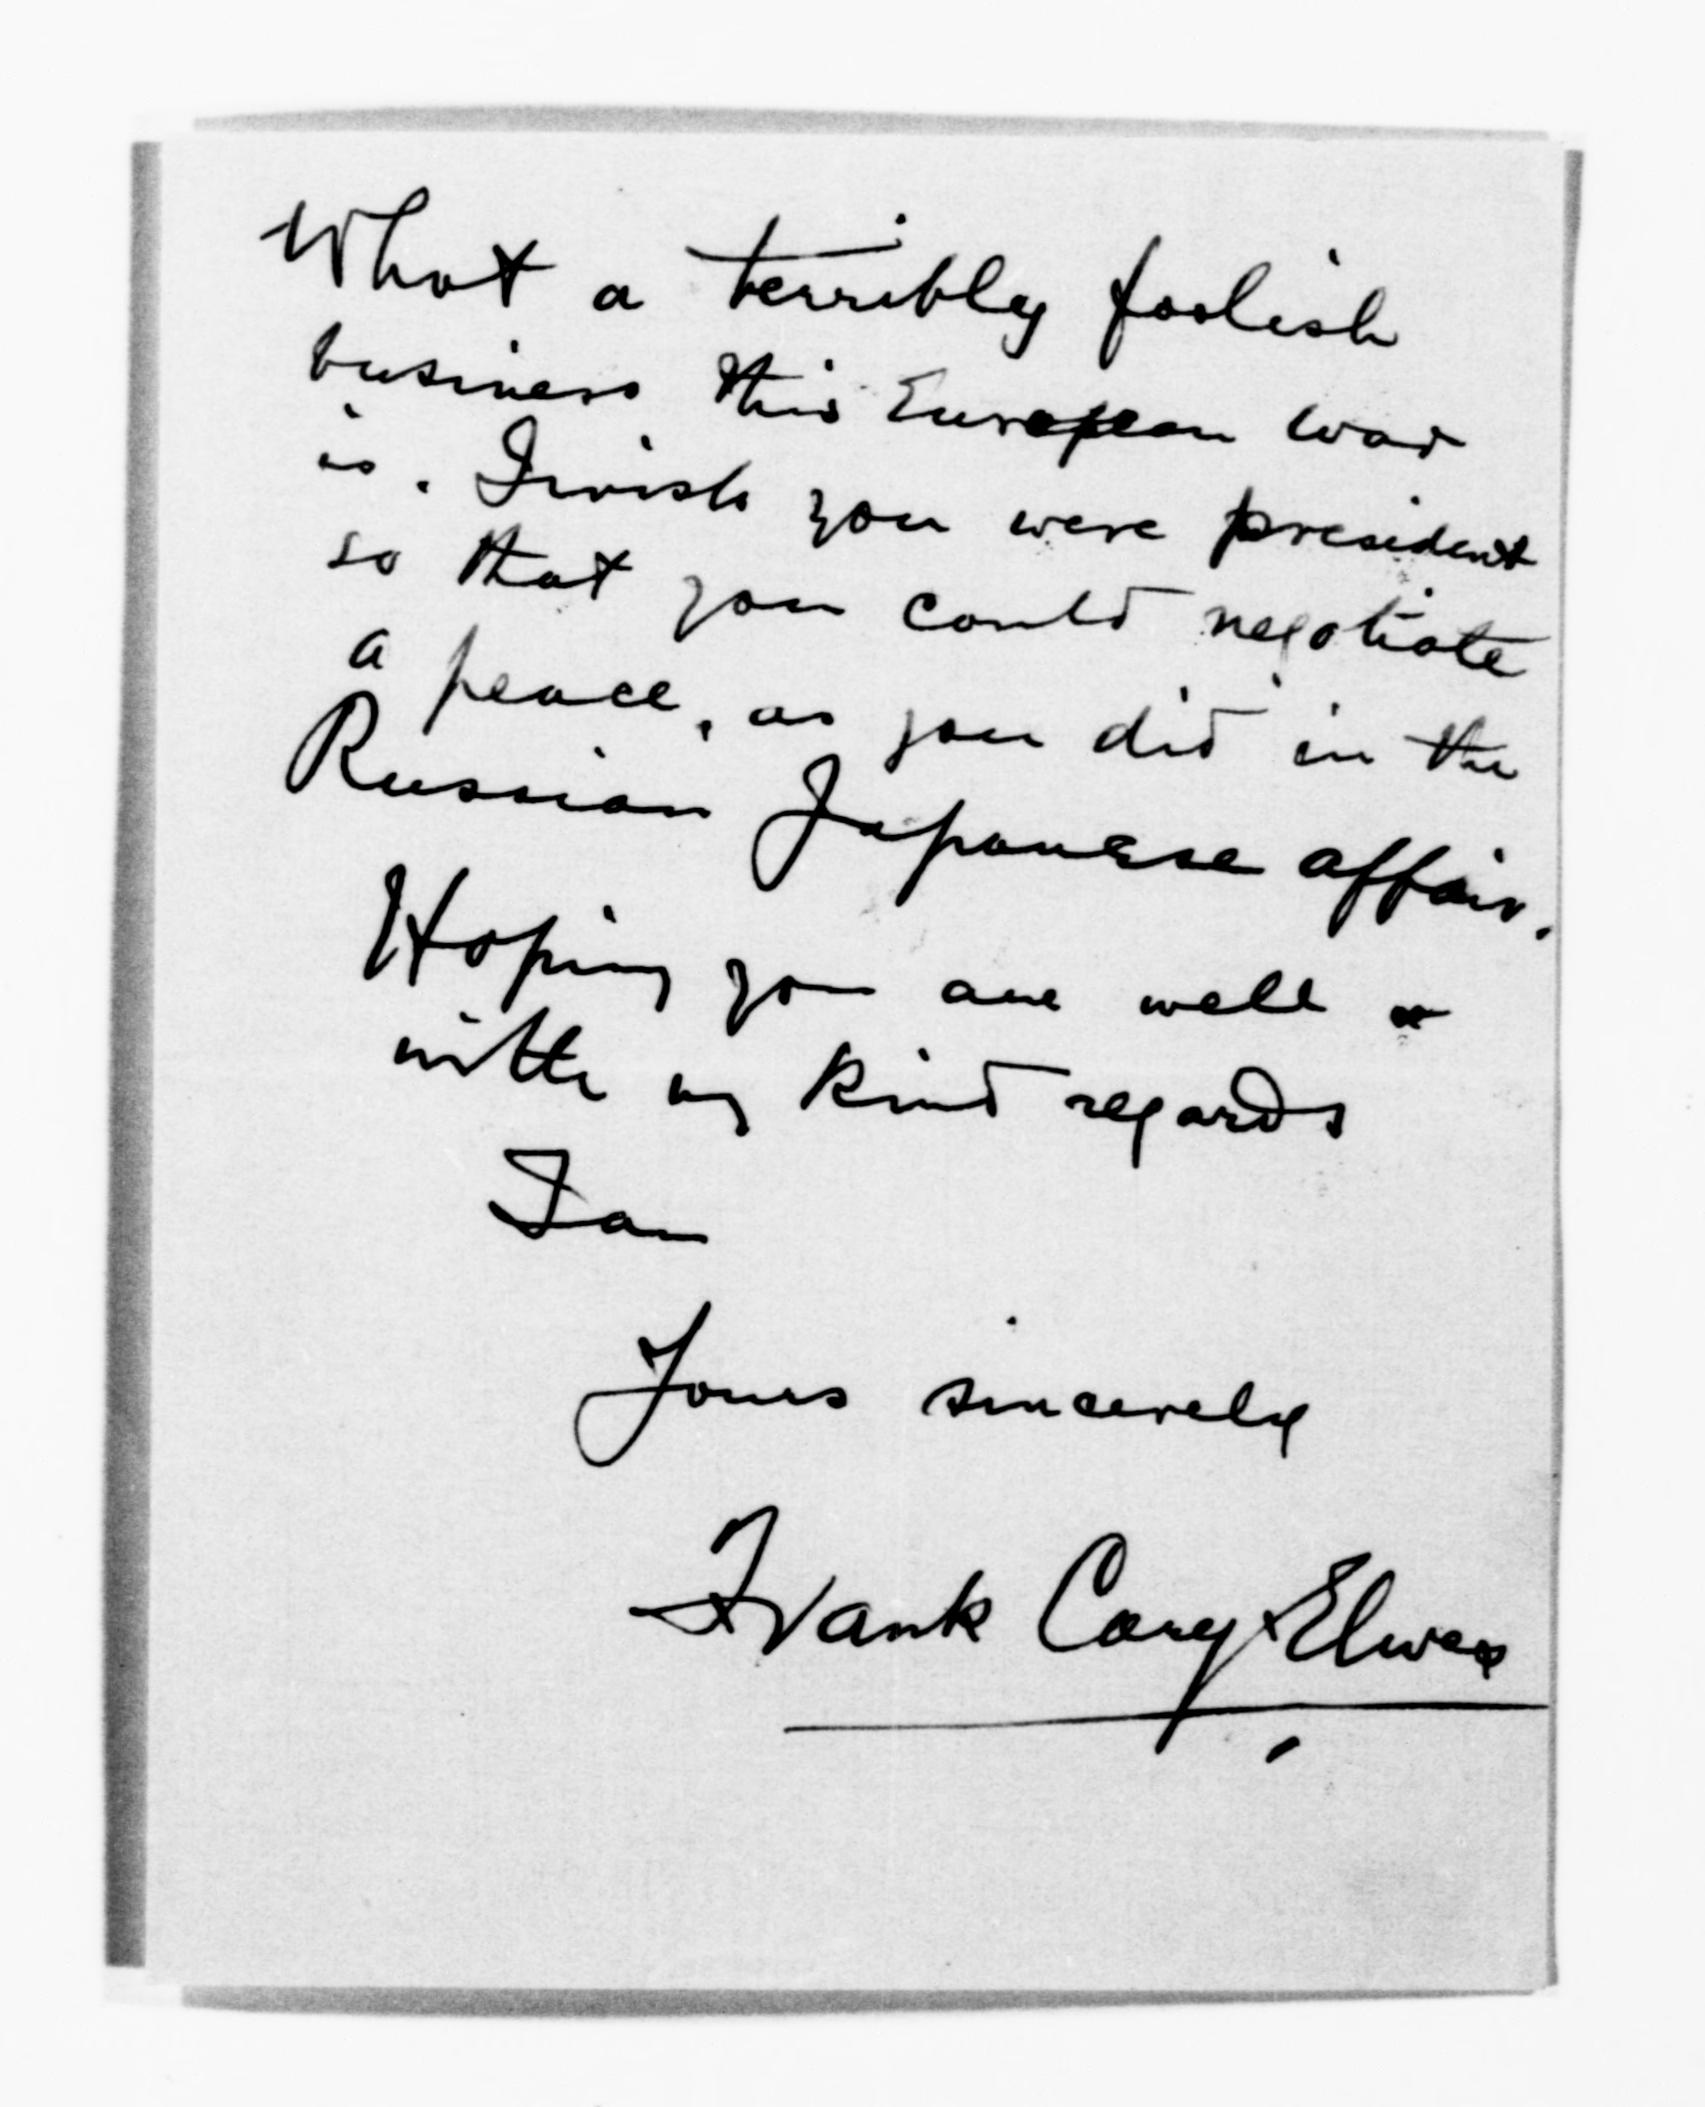 What a terribly foolish
business this European war
is. I wish you were president
so that you could negotiate
a peace, as you did in the
Russian Japanese affair.
Hoping you are well &
with my kind regards
I am
Yours sincerely
Frank Cary-Elwes